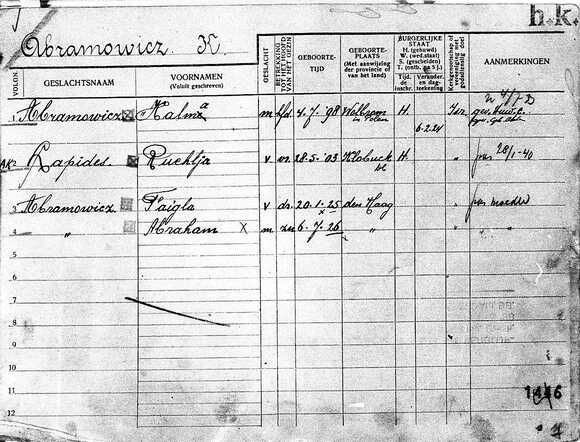 h.k.
Abramowicz. K.
VOLGN. GESLACHTSNAAM VOORNAMEN (Voluit geschreven) GESLACHT BETREKKING TOT HET HOOFD VAN HET GEZIN GEBOORTE-TIJD GEBOORTE-PLAATS (Met aanwijzing der provincie of van het land) BURGERLIJKE STAAT H. (gehuwd) W. (wed.staat) S. (gescheiden) T. (ontb. na 5 j.) Tijd. de inschr. Verander. en dag-teekening Kerkgenootschap of vereeniging met godsdienstig doel AANMERKINGEN
1 Abramowicz Kalma m hfd 4.7.'98 Wolbrom in Polen H. 6.2.24 Isr.
2 Rapides Ruchlja v vr. 28.5.'03 Klobuck H. " 28/1-40
3 Abramowicz Faigla v dr. 20.1.25 den Haag " moeder
4 " Abraham X m zn 6.7.26 " "
5
6
7
8
9
10
11
12
1446